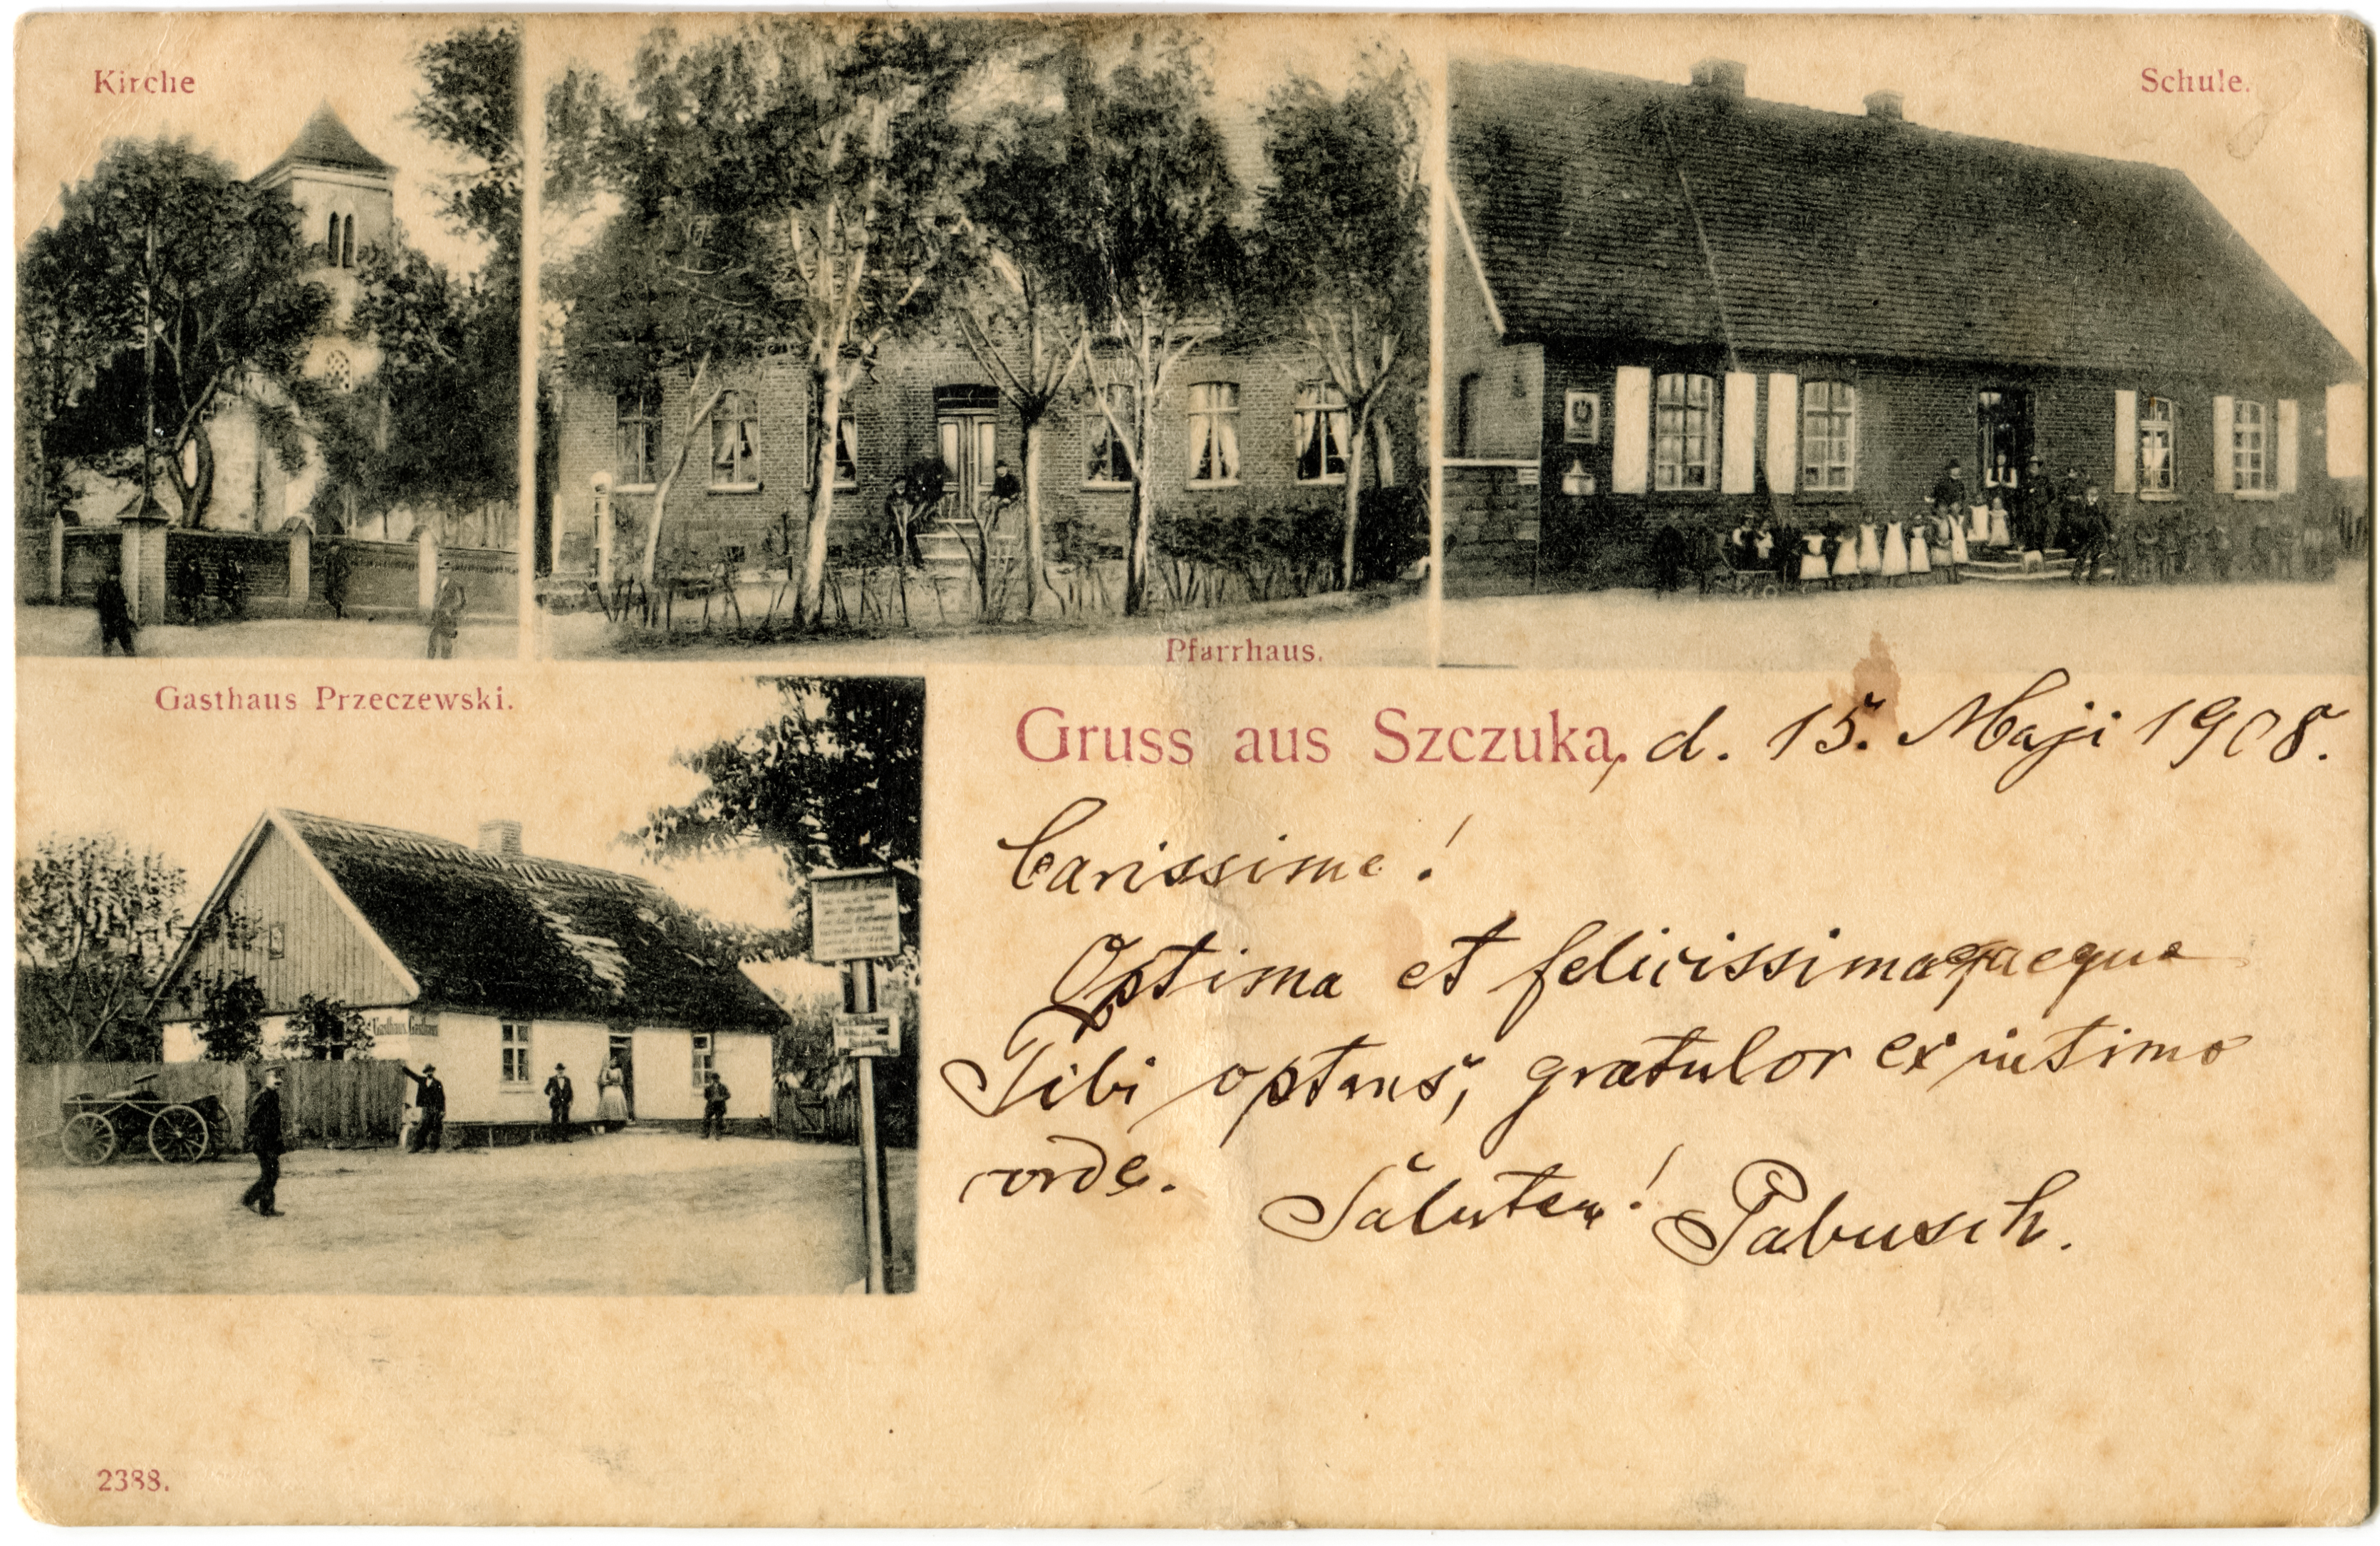 Kirche
Schule.
Pfarrhaus.
Gasthaus Przeczewski.
Gasthaus Gasthaus
Gruss aus Szczuka, d. 15. Maji 1908.
Carissime!
Optima et felicissima quaeque
Tibi optans, gratulor ex intimo
corde.
Salutem! Pabusch.
2388.